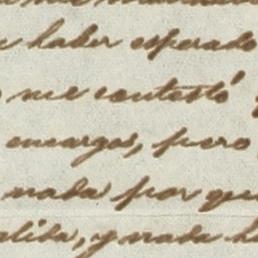 haber esperado
me contestó
encargos, pero
nada por que
alida, y nada